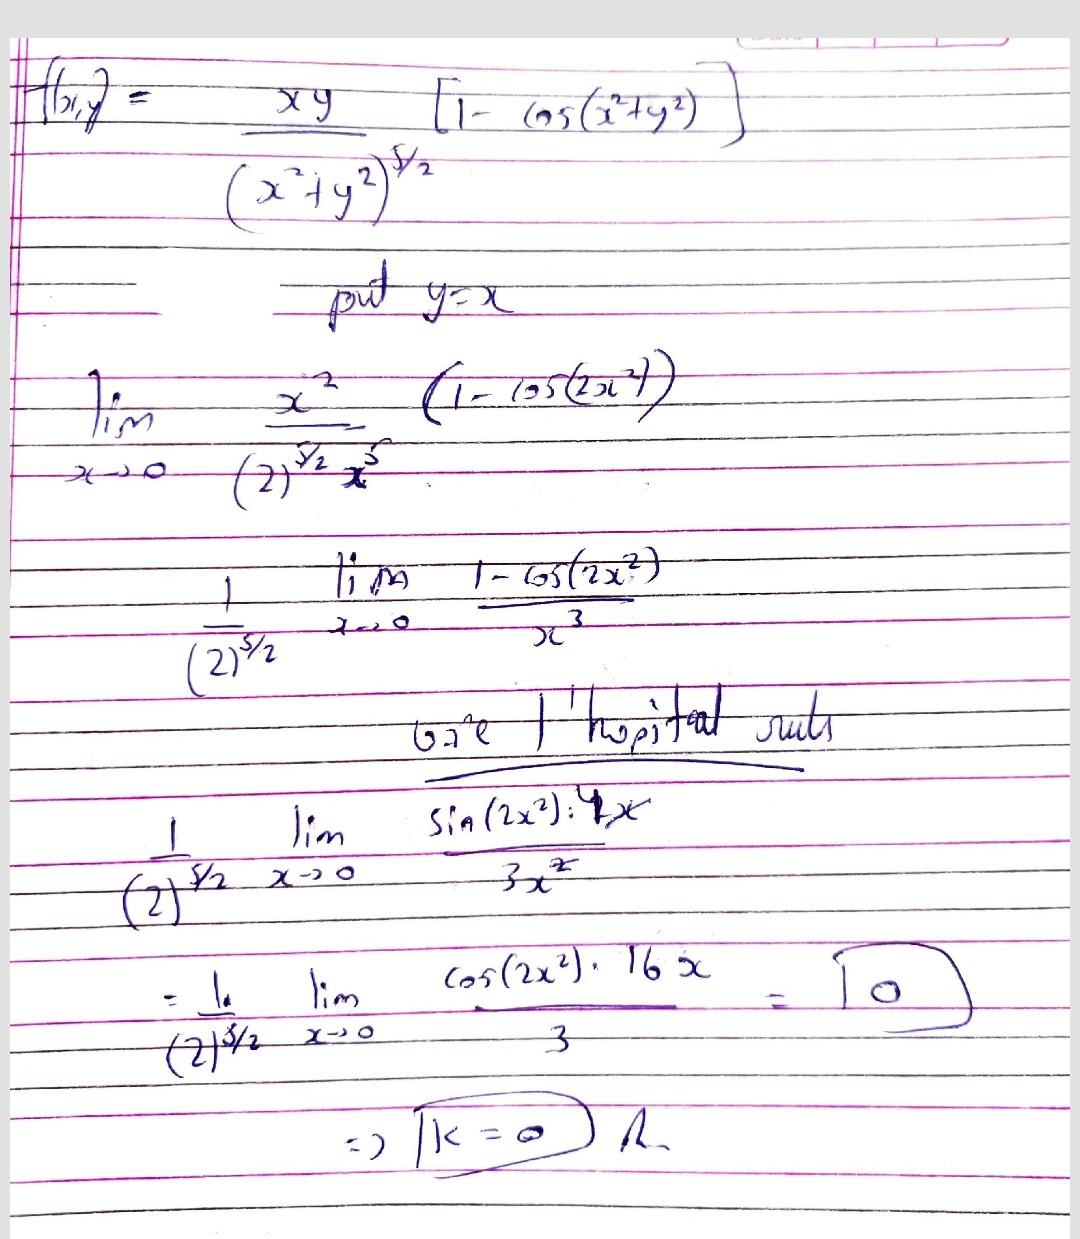 f(x,y) = xy / (x²+y²)^5/2 [1 - cos(x²+y²)]
put y=x
lim x→0 x² / (2)^5/2 x⁵ (1 - cos(2x²))
1 / (2)^5/2 lim x→0 1 - cos(2x²) / x³
l'hopital
1 / (2)^5/2 lim x→0 sin(2x²).4x / 3x²
= 1 / (2)^5/2 lim x→0 cos(2x²). 16x / 3 = 0
=> K = 0